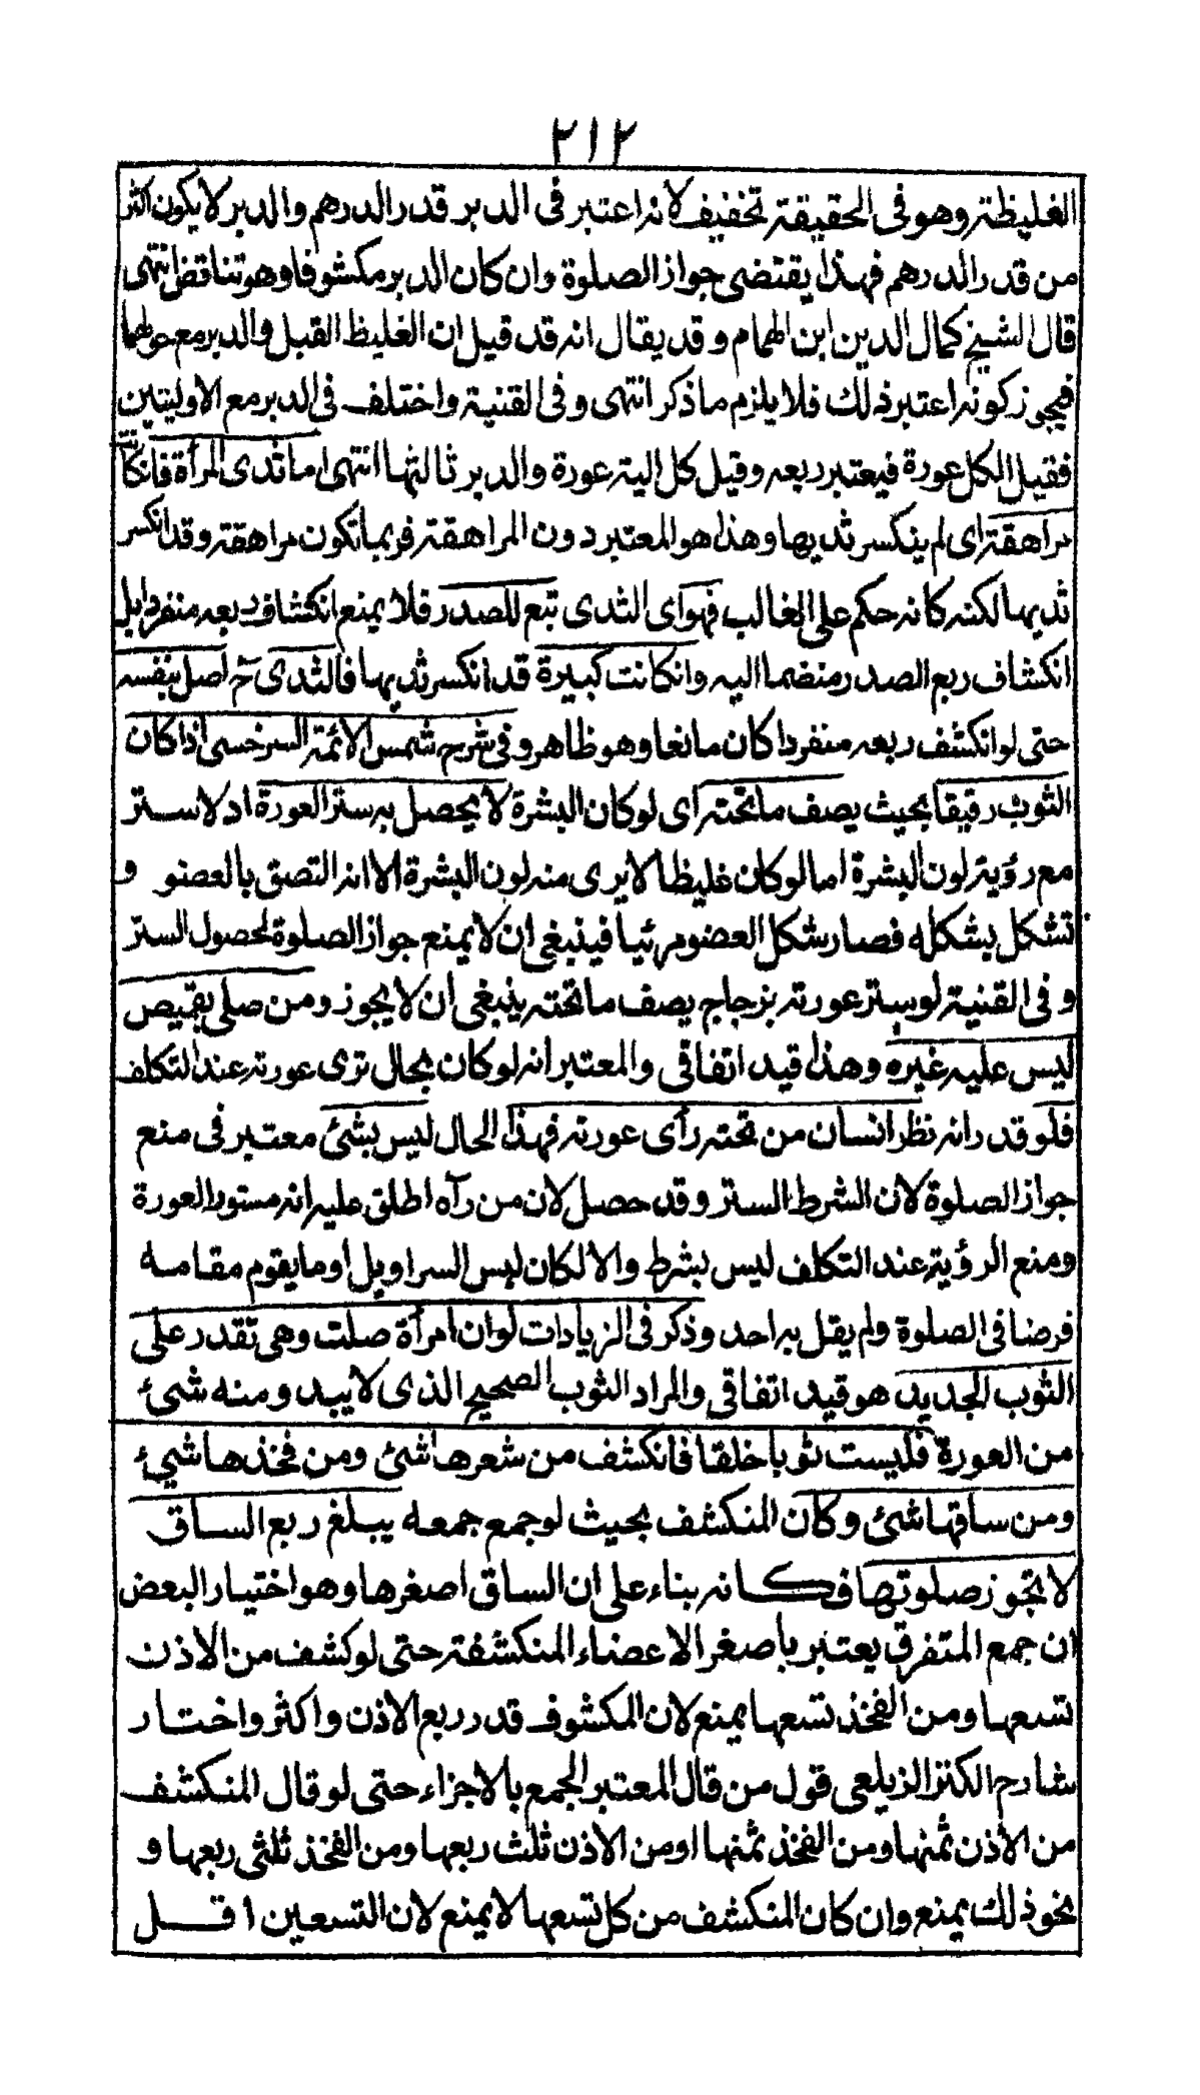 ٢١٢
الغليظة وهو فى الحقيقة تخفيف لانه اعتبر فى الدبر قدر الدرهم والدبر لا يكون اكثر
من قدر الدرهم فهذا يقتضى جواز الصلوة وان كان الدبر مكشوفا وهو تناقض انتهى
قال الشيخ كمال الدين ابن الهمام وقد يقال انه قد قيل ان الغليظ القبل والدبر مع حولهما
فيجوز كونه اعتبر ذلك فلا يلزم ما ذكر انتهى وفى القنية واختلف فى الدبر مع الاليتين
فقيل الكل عورة فيعتبر ربعه وقيل كل الية عورة والدبر ثالثها انتهى اما ثدى المرأة فان كانت
مراهقة اى لم ينكسر ثديها وهذا هو المعتبر دون المراهقة فربما تكون مراهقة وقد انكسر
ثديها لكنه كانه حكم على الغالب فهو اى الثدى تبع للصدر فلا يمنع انكشاف ربعه منفردا بل
انكشاف ربع الصدر منضما اليه وانكانت كبيرة قد انكسر ثديها فالثدى ح اصل بنفسه
حتى لو انكشف ربعه منفردا كان مانعا وهو ظاهر وفى شرح شمس الائمة السرخسى اذا كان
الثوب رقيقا بحيث يصف ما تحته اى لو كان البشرة لا يحصل به ستر العورة اد لا ستر
مع رؤية لون البشرة اما لو كان غليظا لا يرى منه لون البشرة الا انه التصق بالعضو و
تشكل بشكله فصار شكل العضو مرئيا فينبغى ان لا يمنع جواز الصلوة لحصول الستر
وفى القنية لو ستر عورته بزجاج يصف ما تحته ينبغى ان لا يجوز ومن صلى بقميص
ليس عليه غيره وهذا قيد اتفاقى والمعتبر انه لو كان بحال ترى عورته عند التكلف
فلو قدر انه نظر انسان من تحته رأى عورته فهذا الحال ليس بشئ معتبر فى منع
جواز الصلوة لان الشرط الستر وقد حصل لان من رآه اطلق عليه انه مستور العورة
ومنع الرؤية عند التكلف ليس بشرط والا لكان لبس السراويل او ما يقوم مقامه
فرضا فى الصلوة ولم يقل به احد وذكر فى الزيادات لو ان امرأة صلت وهى تقدر على
الثوب الجديد هو قيد اتفاقى والمراد الثوب الصحيح الذى لا يبد ومنه شئ
من العورة فلبست ثوبا خلقا فانكشف من شعرها شئ ومن فخذها شئ
ومن ساقها شئ وكان المنكشف بحيث لو جمع جمعه يبلغ ربع الساق
لا تجوز صلوتها فكانه بناء على ان الساق اصغرها وهو اختيار البعض
ان جمع المتفرق يعتبر باصغر الاعضاء المنكشفة حتى لو كشف من الاذن
تسعها ومن الفخذ تسعها يمنع لان المكشوف قدر ربع الاذن واكثر واختار
شارح الكنز الزيلعى قول من قال المعتبر الجمع بالاجزاء حتى لو قال المنكشف
من الأذن ثمنها ومن الفخذ ثمنها او من الاذن ثلث ربعها ومن الفخذ ثلثى ربعها و
نحو ذلك يمنع وان كان المنكشف من كل تسعها لا يمنع لان التسعين اقل